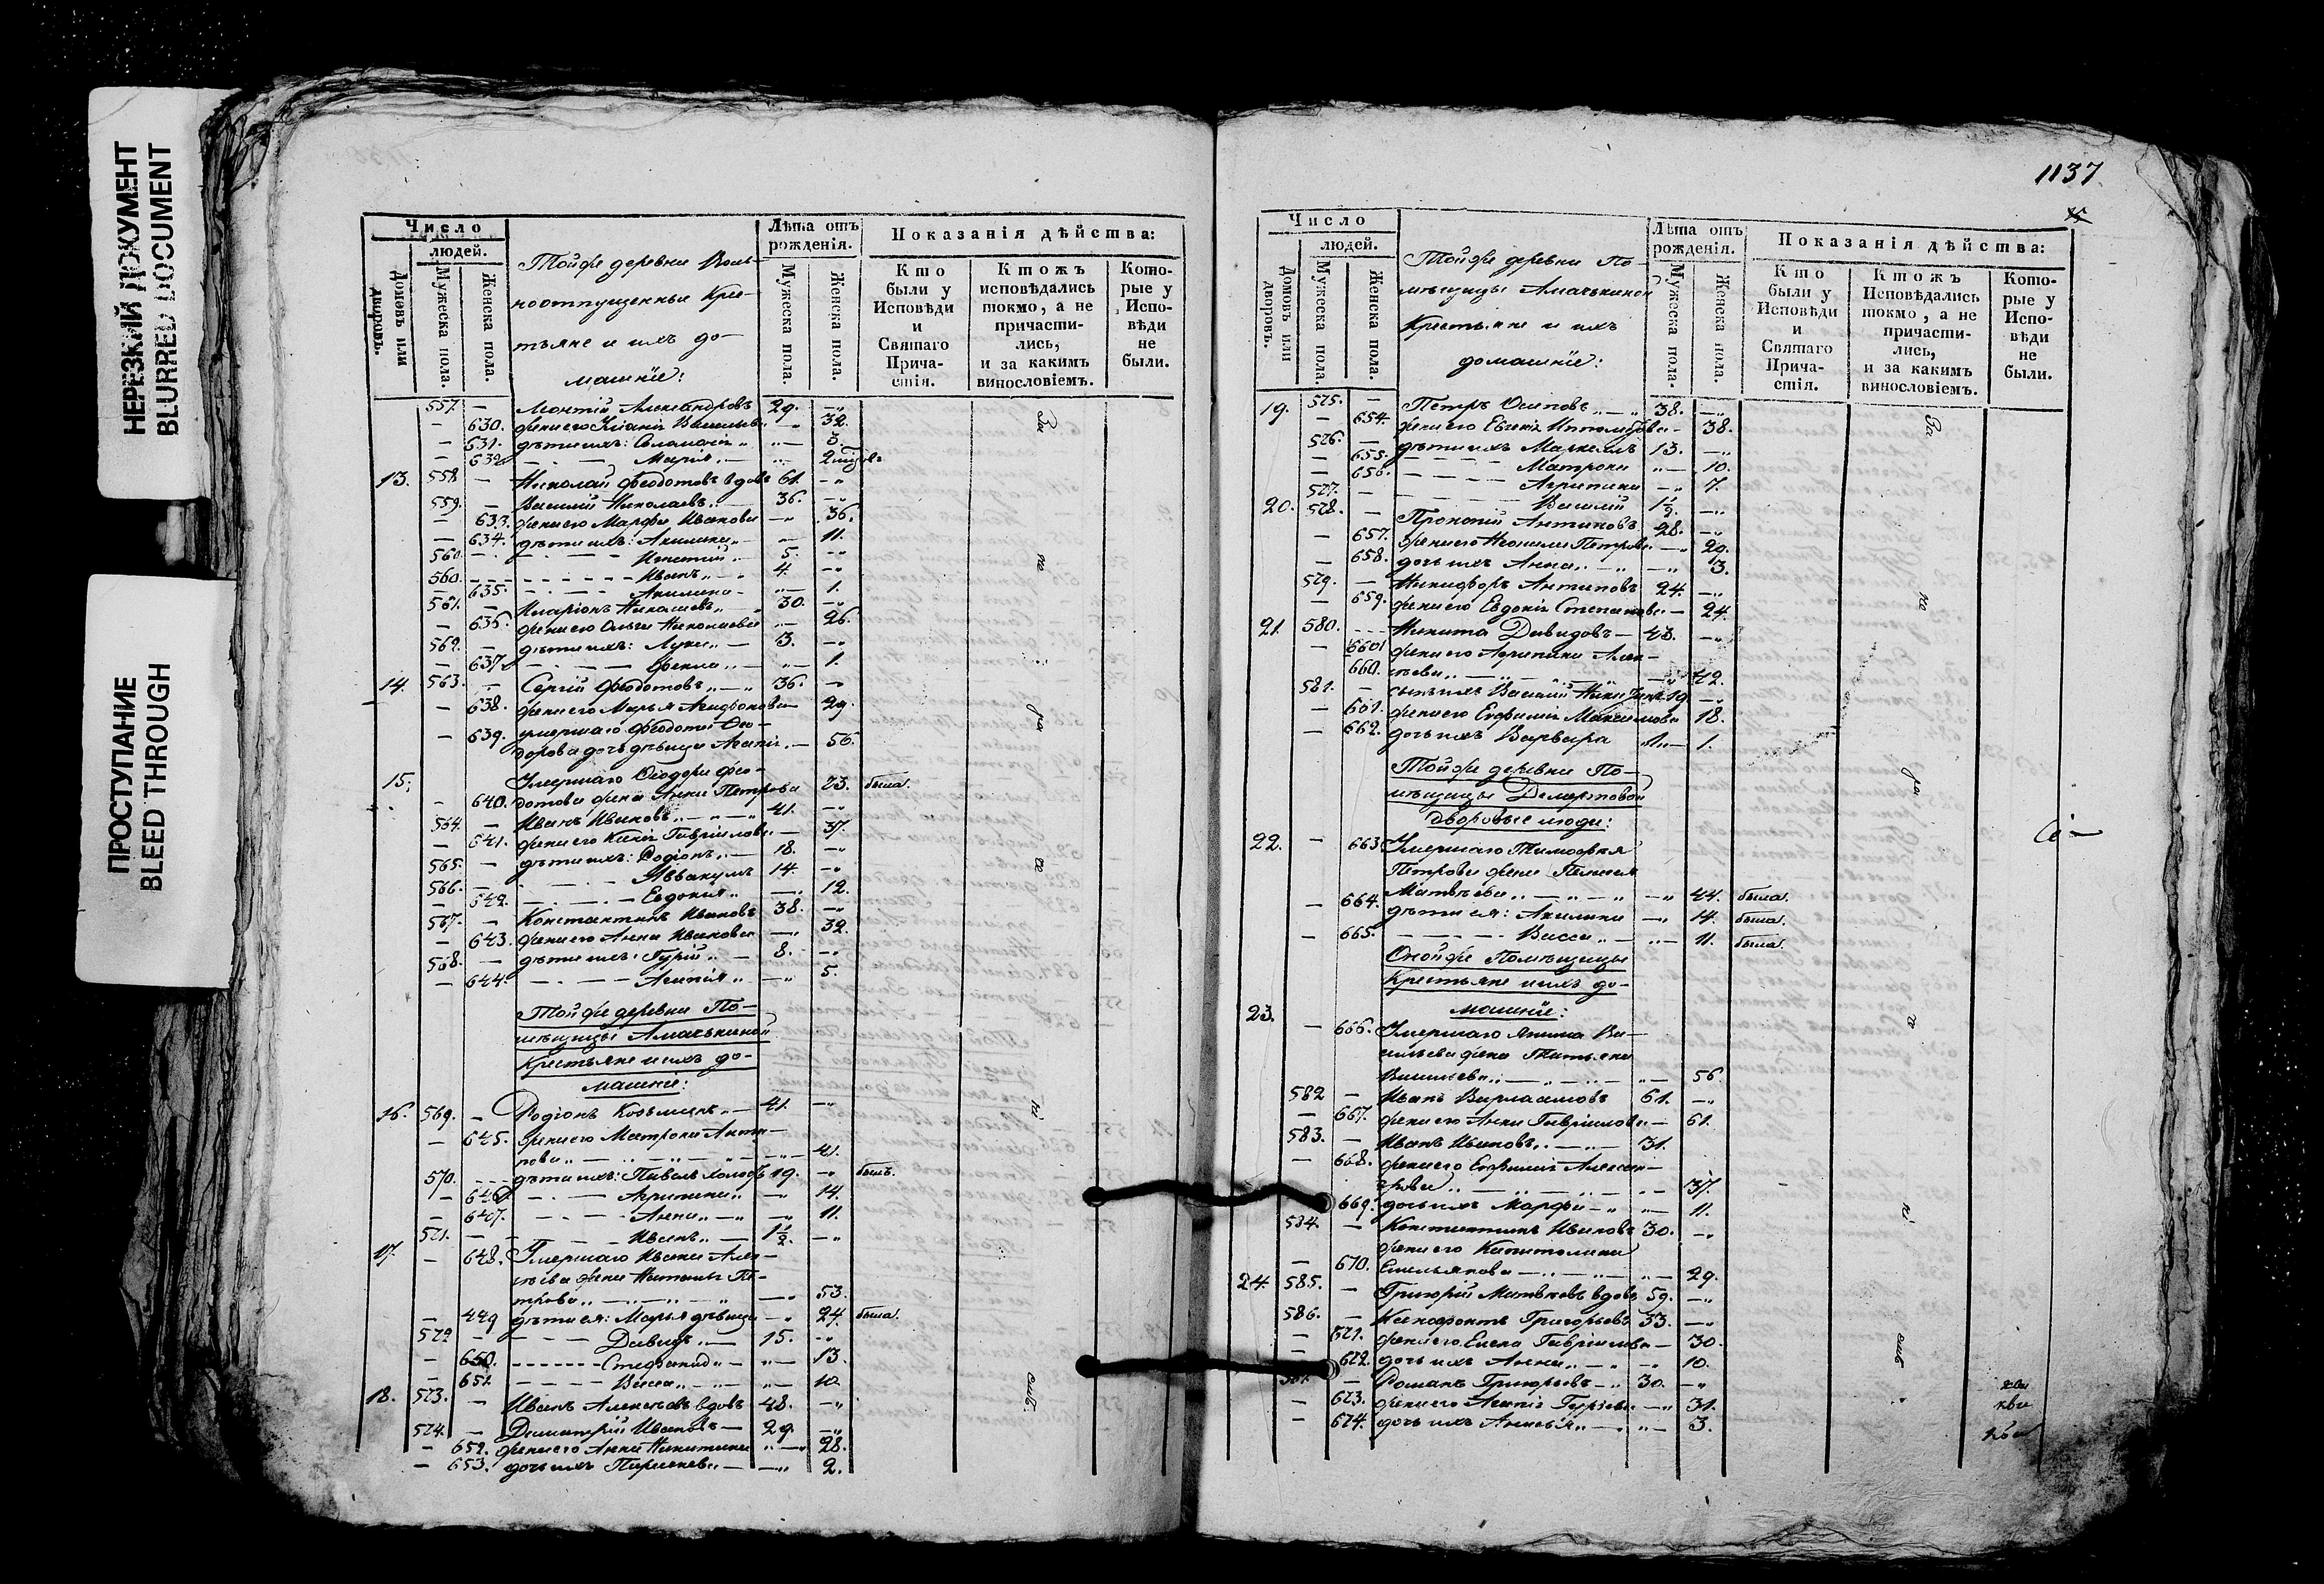 НЕРЕЗКИЙ ДОКУМЕНТ
BLURRED DOCUMENT
ПРОСТУПАНИЕ
BLEED THROUGH
Число
людей.
Домовъ или дворовъ.
Мужеска пола.
Женска пола.
Тойже деревни Воль-
ноотпущенные Крес-
тьяне и ихъ до-
машніе:
Лѣта отъ рожденія.
Мужеска пола.
Женска пола.
Показанія дѣйства:
Кто были у Исповѣди и Святаго Прича-стія.
Ктожъ исповѣдались токмо, а не причасти-лись, и за какимъ винословіемъ.
Кото-рые у Испо-вѣди не были.
557. — Леонтій Александровъ 29. —
— 630. жена его Васильева — 32.
— 631. дѣти ихъ: Соломонія — 3.
— 632. Марія —
13. 558. — Николай Ѳеодотовъ вдовъ 61. —
559. — Василій Николаевъ 36. —
— 633. жена его Марфа Иванова — 36.
— 634. дѣти ихъ: Акилина — 11.
560. — Игнатій 5. —
560. — Иванъ 4. —
— 635. Акилина — 1.
561. — Иларіонъ Николаевъ 30. —
— 636. жена его Ольга Николаева — 26.
562. — дѣти ихъ: Лука 3. —
— 637. Ѳекла — 1.
14. 563. — Сергій Ѳеодотовъ 36. —
— 638. жена его Марья Агафонова — 29.
умершаго Ѳеодота Ѳео-
— 639. дорова дочь дѣвица Агапія — 56.
15. Умершаго Ѳеодора Ѳео-
— 640. дотова жена Анна Петрова 23. была.
564. — Иванъ Ивановъ 41. —
— 641. жена его Ксенія Гавріилова — 37.
565. — дѣти ихъ: Родіонъ 18. —
566. — Аввакумъ 14. —
— 642. Евдокія — 12.
567. — Константинъ Ивановъ 38. —
— 643. жена его Анна Иванова — 32.
568. — дѣти ихъ: Гурій 8. —
— 644. Агапія — 5.
Тойже деревни По-
мѣщицы Амачькиной
Крестьяне и ихъ до-
машніе:
16. 569. — Родіонъ Козьминъ 41. —
— 645. жена его Матрона Анти-
пова — 41.
570. дѣти ихъ: Павелъ холостъ 19. — былъ.
— 646. Агрипина — 14.
— 647. Анна — 11.
571. — Иванъ 1½. —
17. — 648. Умершаго Ивана Алек-
сѣева жена Наталья Пе-
трова — 53.
— 449 дѣти ея: Марья дѣвица — 24. была.
572 — Давидъ 15. —
— 650. Стефанида — 13.
— 651. Васса — 10.
18. 573. — Иванъ Алексѣевъ вдовъ 48. —
574. — Димитрій Ивановъ — 29. —
— 652. жена его Анна Никитина — 28.
— 653. дочь ихъ Параскева — 2.
1137
Число
людей.
Домовъ или дворовъ.
Мужеска пола.
Женска пола.
Тойже деревни По-
мѣщицы Амачькиной
Крестьяне и ихъ
домашніе:
Лѣта отъ рожденія.
Мужеска пола.
Женска пола.
Показанія дѣйства:
Кто были у Исповѣди и Святаго Прича-стія.
Ктожъ Исповѣдались токмо, а не причасти-лись, и за какимъ винословіемъ.
Кото-рые у Испо-вѣди не были.
19. 575. — Петръ Осиповъ 38. —
— 654. жена его Евгенія Ипполитова — 38.
576. — дѣти ихъ Маркеллъ 13. —
— 655. Матрона — 10.
— 656. Агрипина — 7.
577. — Василій 1½. —
20. 578. — Прокопій Антиповъ 28. —
— 657. жена его Неонила Петрова — 29.
— 658. дочь ихъ Анна — 3.
579. — Никифоръ Антиповъ 24. —
— 659. жена его Евдокія Степанова — 24.
21. 580. Никита Давидовъ — 43. —
— 6601 жена его Агрипина Алек-
660. сѣева — 42.
581. — сынъ ихъ Василій Никитинъ 19 —
— 661. жена его Евфимія Максимова 18.
— 662. дочь ихъ Варвара — 1.
Тойже деревни По-
мѣщицы Делертовой
дворовые люди:
22. — 663 Умершаго Тимофея
Петрова жена Пелагея
Матвѣева — 44. была.
— 664. дѣти ея: Акилина — 14. была.
— 665. Васса — 11. была.
Онойже Помѣщицы
Крестьяне и ихъ до-
машніе:
23. — 666. Умершаго Якима Ва-
сильева жена Татьяна
Васильева — 56.
582 — Иванъ Варлаамовъ 61. —
— 667. жена его Анна Гавріилова — 61.
583. — Иванъ Ивановъ 31.
— 668. жена его Евфимія Алексан-
дрова — 37.
669. дочь ихъ Марфа — 11.
584. — Константинъ Ивановъ 30. —
жена его Капитолина
— 670. Емельянова — 29.
24. 585. — Григорій Матвѣевъ вдовъ 59. —
586. — Ксенофонтъ Григорьевъ 33. —
— 671. жена его Елена Гавріилова — 30.
— 672. дочь ихъ Анна — 10.
587. — Романъ Григорьевъ — 30. —
— 673. жена его Агапія Гурьева — 31.
— 674. дочь ихъ Анисья — 3.